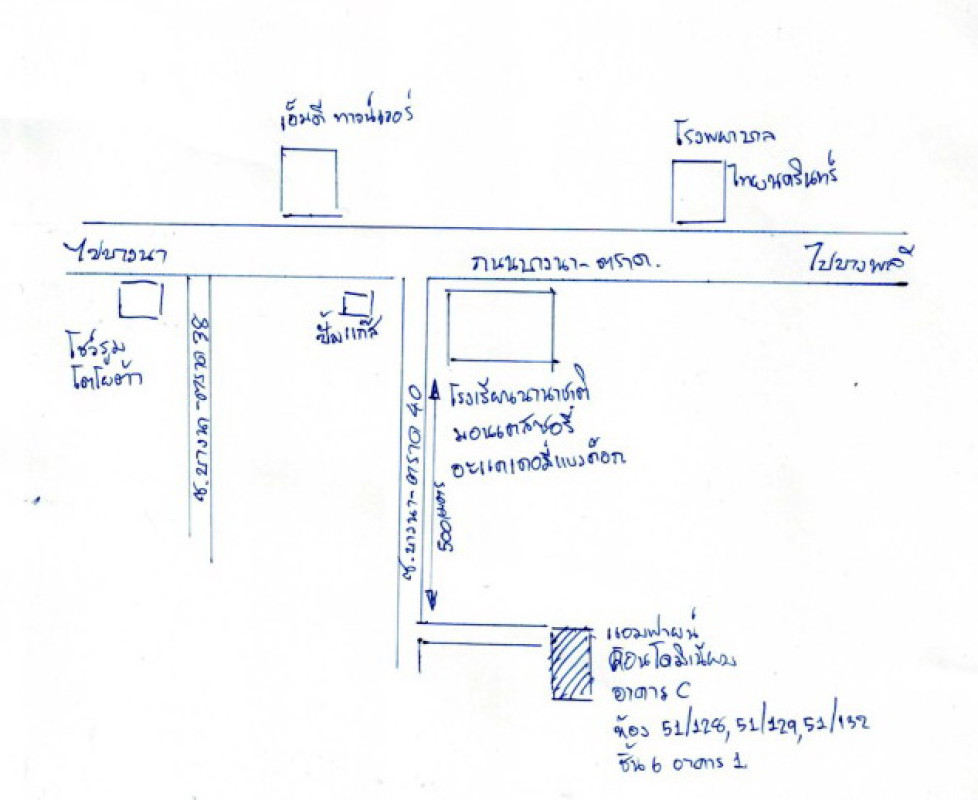 เอ็มดี ทาวน์เวอร์
โรงพยาบาล
ไทยนครินทร์
ไปบางนา
ถนนบางนา-ตราด.
ไปบางพลี
โชว์รูม
โตโยต้า
ซ.บางนา-ตราด 38
ปั้มแก๊ส
ซ.บางนา-ตราด 40
500 เมตร
โรงเรียนนานาชาติ
มอนเตสซอรี่
อะแคเดอมี่แบงค็อก
แอมฟายน์
คอนโดมิเนียม
อาคาร C
ห้อง 51/128, 51/129, 51/132
ชั้น 6 อาคาร 1